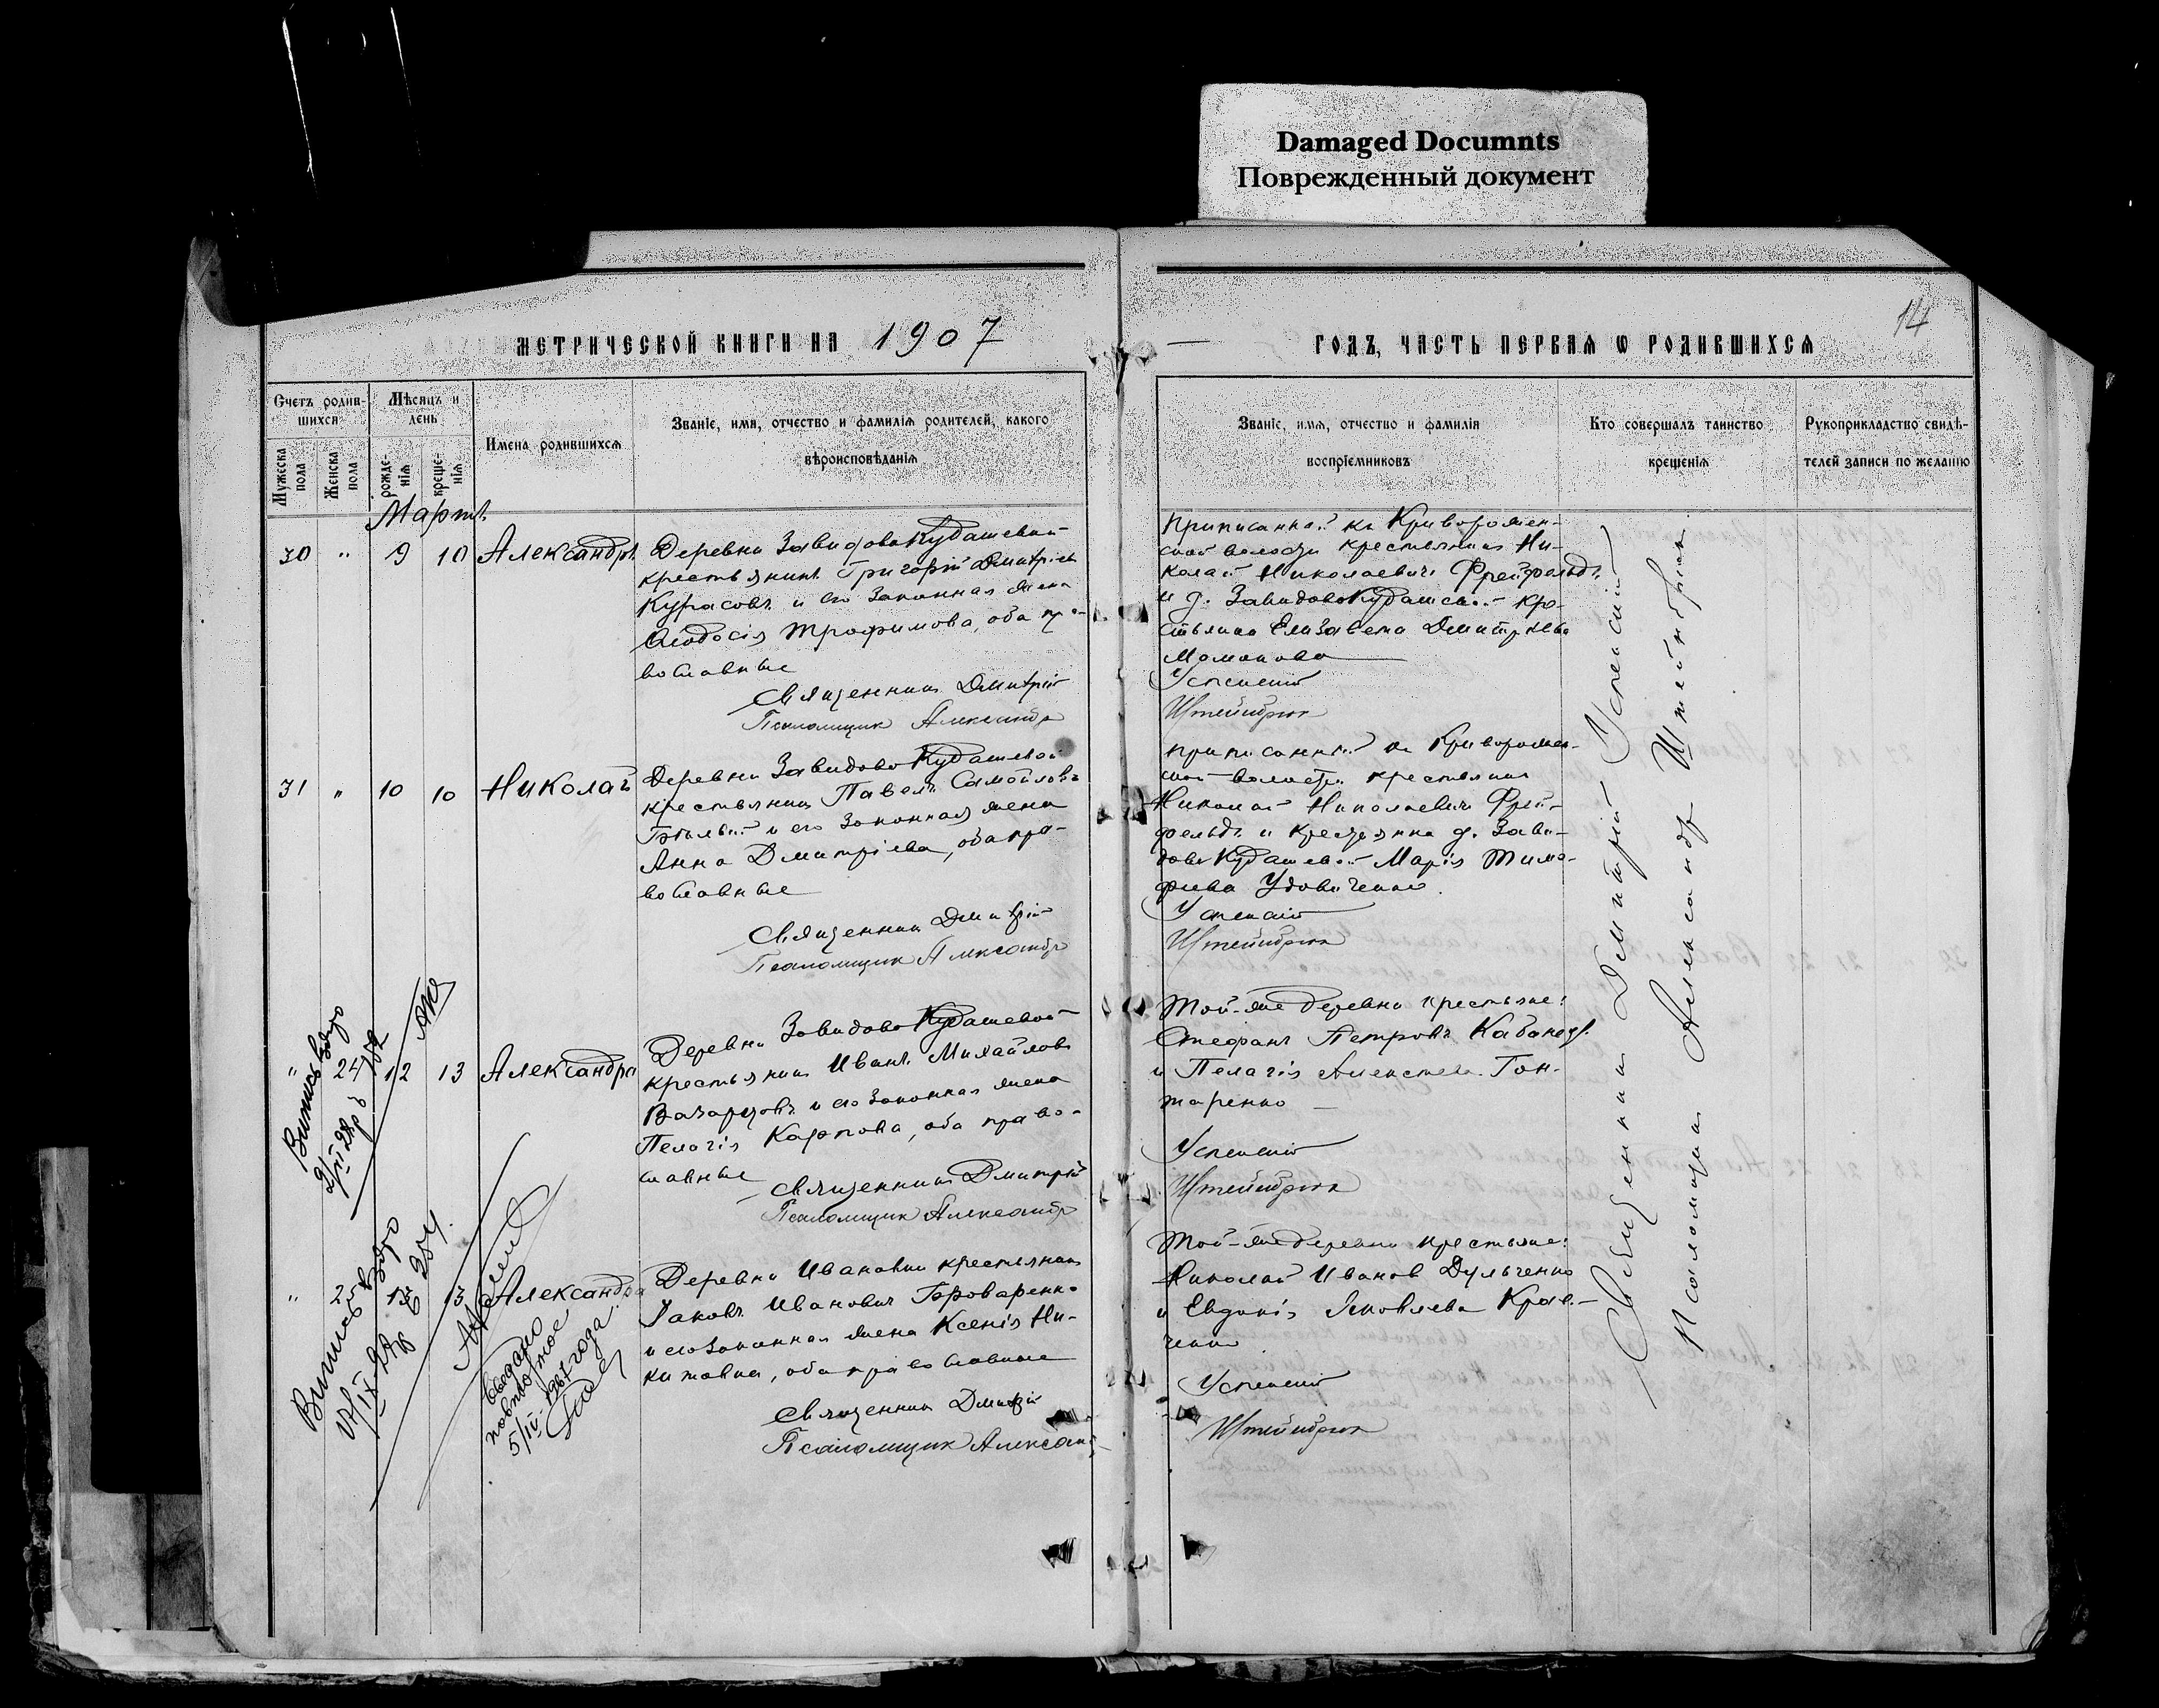 Damaged Documnts
Поврежденный документ
14
МЕТРИЧЕСКОЙ КНИГИ НА 1907
ГОДЪ, ЧАСТЬ ПЕРВАЯ Ѡ РОДИВШИХСЯ
Счетъ родив-
шихся
Мужеска
пола
Женска
пола
Мѣсяцъ и
день
рожде-
нія
креще-
нія
Имена родившихся
Званіе, имя, отчество и фамилія родителей, какого
вѣроисповѣданія
Званіе, имя, отчество и фамилія
воспріемниковъ
Кто совершалъ таинство
крещенія
Рукоприкладство свидѣ-
телей записи по желанію
Мартъ
30 " 9 10 Александръ
Деревни Завидово Кудашевой
крестьянинъ Григорій Дмитріевъ
Курасовъ и его законная жена
Ѳеодосія Трофимова, оба пра-
вославные
Священникъ Дмитрій
Псаломщикъ Александръ
Приписанный къ Криворожен-
ской волости крестьянинъ Ни-
колай Николаевичъ Фрейфельдъ
и д. Завидово Кудашевой кре-
стьянка Елизавета Дмитріева
Успенскій
Штейнбрюкъ
31 " 10 10 Николай
Деревни Завидово Кудашевой
крестьянинъ Павелъ Самойловъ
Бѣлый и его законная жена
Анна Дмитріева, оба пра-
вославные
Священникъ Дмитрій
Псаломщикъ Александръ
приписанный къ Криворожен-
ской волости крестьянинъ
Николай Николаевичъ Фрей-
фельдъ и крестьянка д. Зави-
дово Кудашевой Марія Тимо-
феева Удовиченко
Успенскій
Штейнбрюкъ
" 24 12 13 Александра
Деревни Завидово Кудашевой
крестьянинъ Иванъ Михайловъ
и его законная жена
Пелагія Карпова, оба право-
славные
Священникъ Дмитрій
Псаломщикъ Александръ
Той-же деревни крестьяне:
Стефанъ Петровъ Кабанецъ
и Пелагія Алексѣева Гон-
таренко
Успенскій
Штейнбрюкъ
" 13 Александра
Деревни Ивановки крестьянинъ
Яковъ Ивановичъ Броваренко
и его законная жена Ксенія Ни-
китовна, оба православные
Священникъ Дмитрій
Псаломщикъ Александръ
Той-же деревни крестьяне:
Николай Ивановъ Дульченко
и Евдокія Яковлева Крав-
ченко
Успенскій
Штейнбрюкъ
Священникъ Дмитрій Успенскій
Псаломщикъ Александръ Штейнбрюкъ
Выдано
повторное
5/IV-1967 года